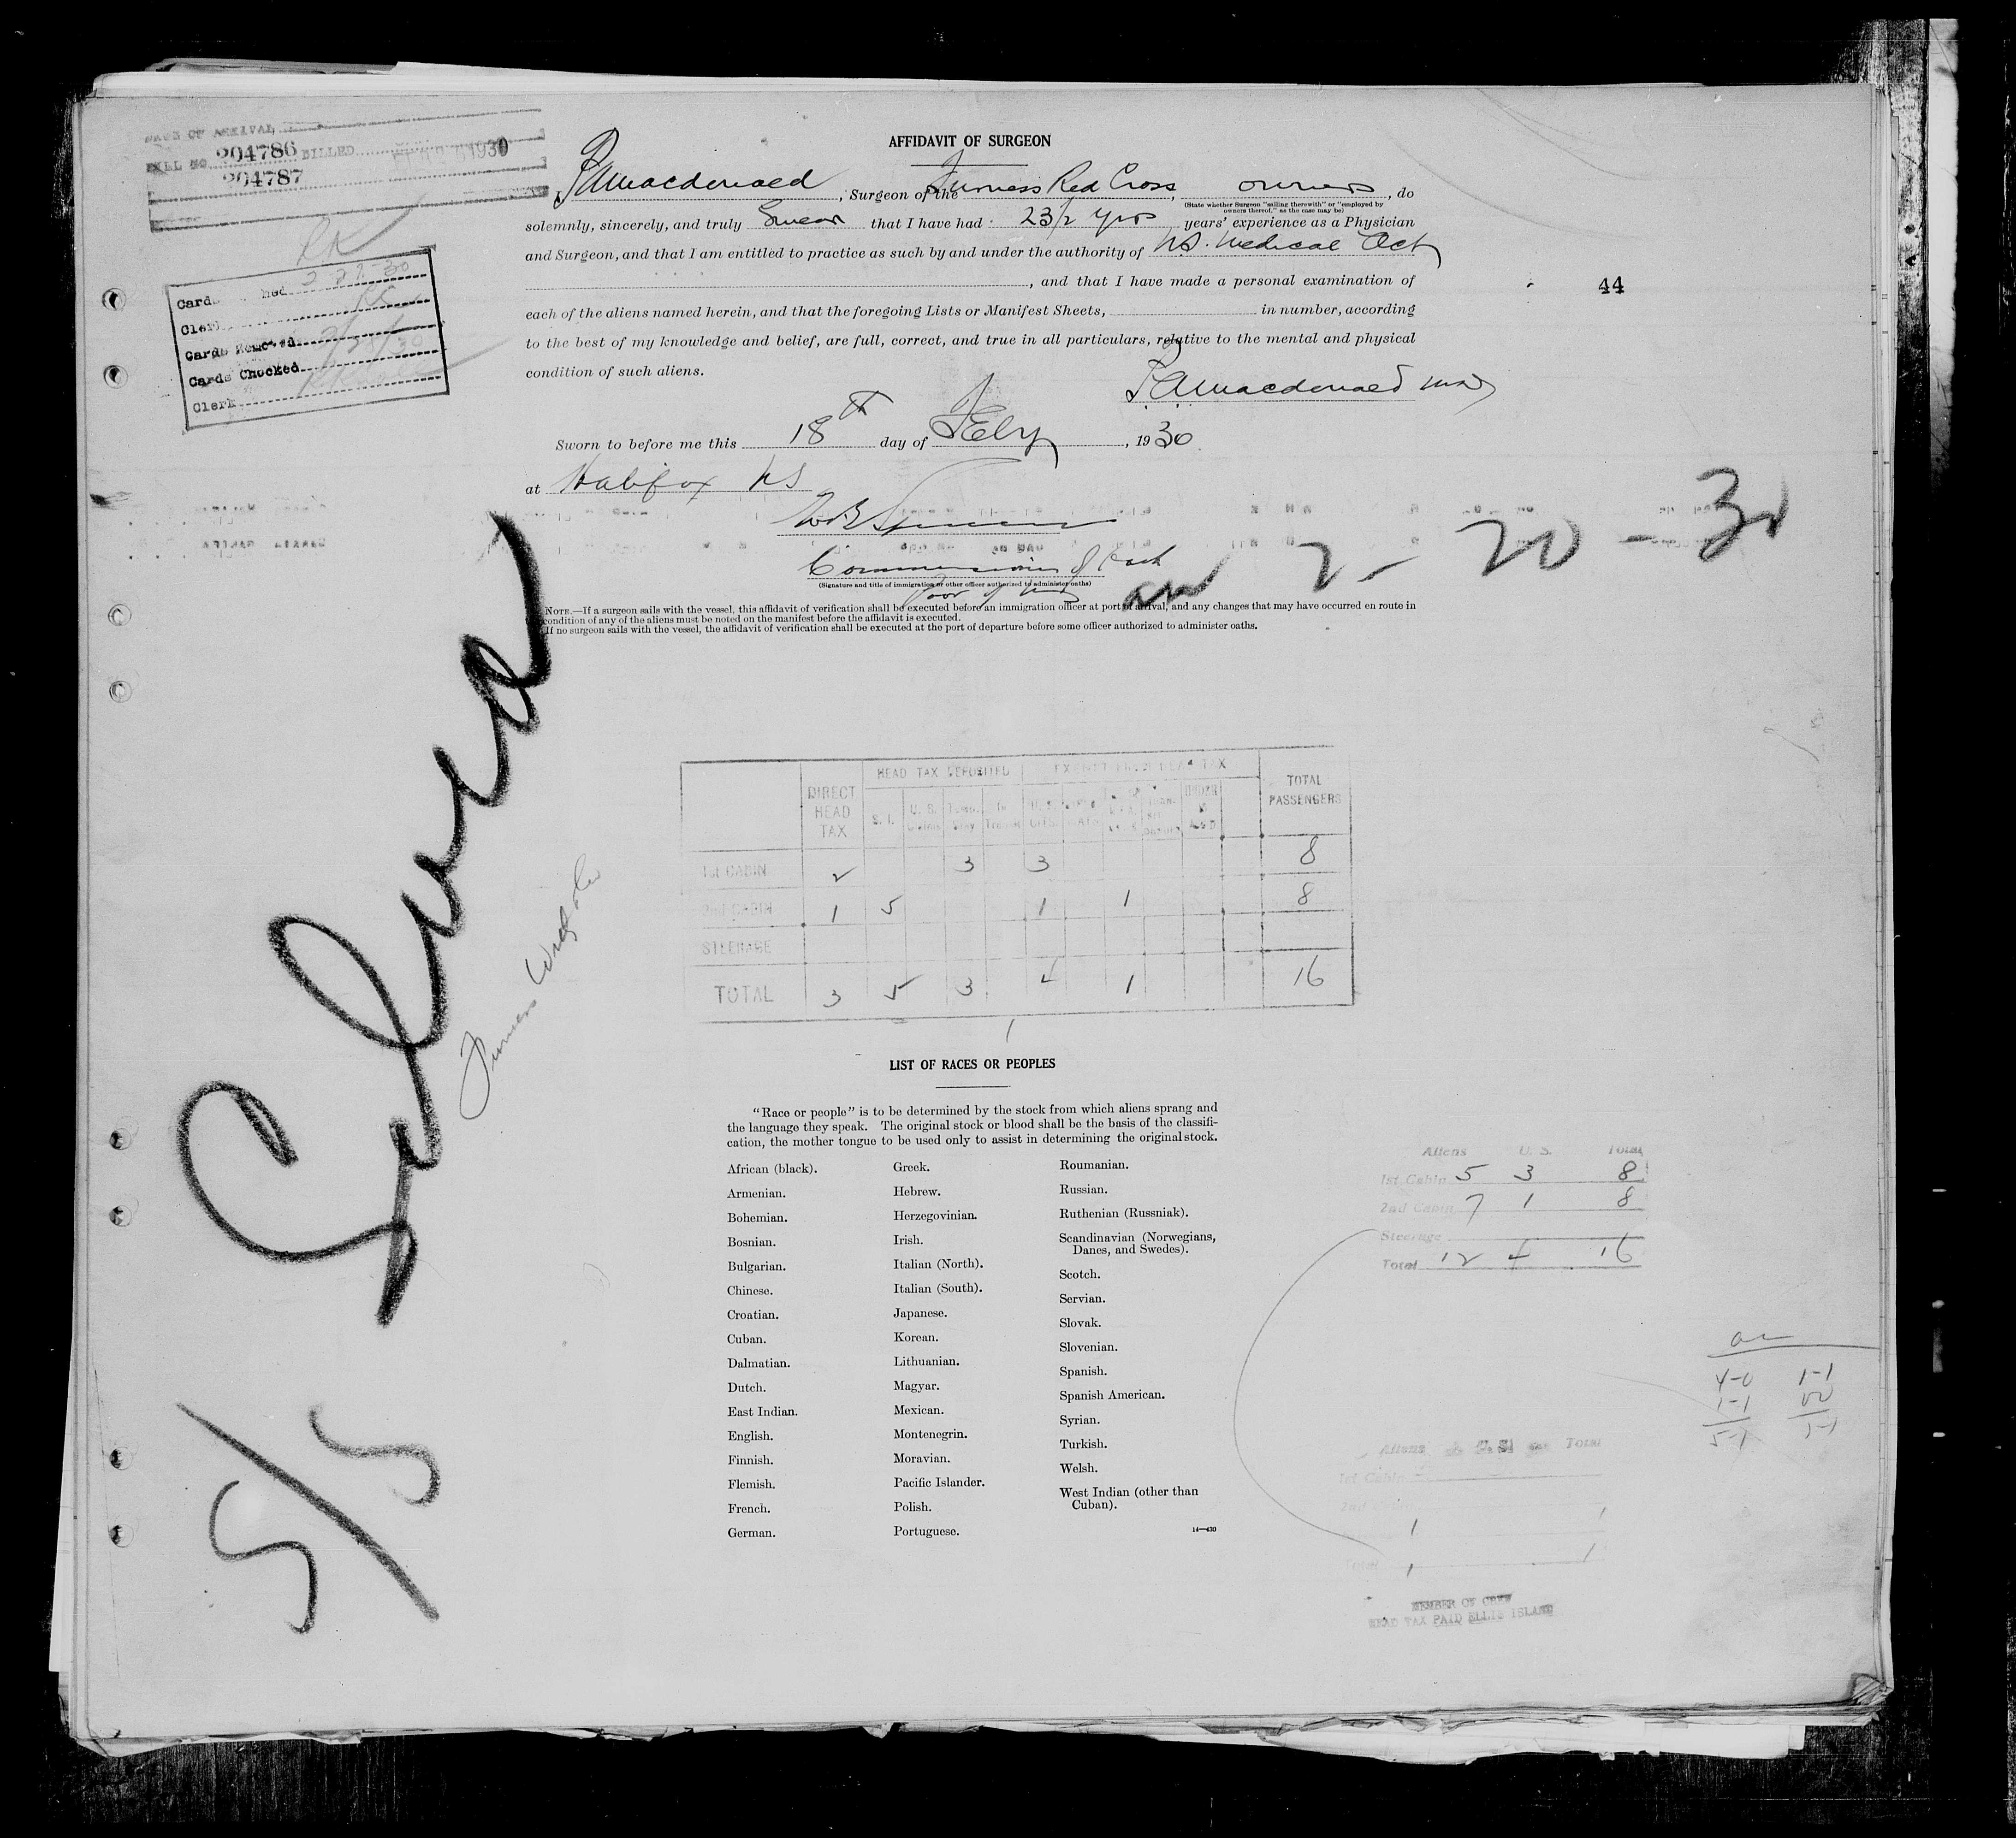 DATE OF ARRIVAL
BILL NO. 204786 BILLED 1930
204787
RK
Cards 2 21 30
Clerk
Cards Removed
Cards Checked
Clerk
AFFIDAVIT OF SURGEON
I, Macdonald, Surgeon of the Furness Red Cross, owners, do
(State whether Surgeon "sailing therewith" or "employed by
owners thereof," as the case may be)
solemnly, sincerely, and truly Swear that I have had 23/2 yrs years' experience as a Physician
and Surgeon, and that I am entitled to practice as such by and under the authority of N.S. Medical Act
, and that I have made a personal examination of
44
each of the aliens named herein, and that the foregoing Lists or Manifest Sheets, in number, according
to the best of my knowledge and belief, are full, correct, and true in all particulars, relative to the mental and physical
condition of such aliens.
Macdonald MD
Sworn to before me this 18th day of Feby, 1930
at Halifax NS
(Signature and title of immigration or other officer authorized to administer oaths)
2-20-30
NOTE.—If a surgeon sails with the vessel, this affidavit of verification shall be executed before an immigration officer at port of arrival, and any changes that may have occurred en route in
condition of any of the aliens must be noted on the manifest before the affidavit is executed.
If no surgeon sails with the vessel, the affidavit of verification shall be executed at the port of departure before some officer authorized to administer oaths.
Silvia
Furness
5/5
HEAD TAX DEPOSITED EXEMPT FROM HEAD TAX
DIRECT HEAD TAX S. I. U. S. TOTAL PASSENGERS
1st CABIN 2 3 3 8
2nd CABIN 1 5 1 1 8
STEERAGE
TOTAL 3 5 3 4 1 16
LIST OF RACES OR PEOPLES
"Race or people" is to be determined by the stock from which aliens sprang and
the language they speak. The original stock or blood shall be the basis of the classifi-
cation, the mother tongue to be used only to assist in determining the original stock.
African (black).
Armenian.
Bohemian.
Bosnian.
Bulgarian.
Chinese.
Croatian.
Cuban.
Dalmatian.
Dutch.
East Indian.
English.
Finnish.
Flemish.
French.
German.
Greek.
Hebrew.
Herzegovinian.
Irish.
Italian (North).
Italian (South).
Japanese.
Korean.
Lithuanian.
Magyar.
Mexican.
Montenegrin.
Moravian.
Pacific Islander.
Polish.
Portuguese.
Roumanian.
Russian.
Ruthenian (Russniak).
Scandinavian (Norwegians,
Danes, and Swedes).
Scotch.
Servian.
Slovak.
Slovenian.
Spanish.
Spanish American.
Syrian.
Turkish.
Welsh.
West Indian (other than
Cuban).
14—430
Aliens U. S. Total
1st Cabin 5 3 8
2nd Cabin 7 1 8
Steerage
Total 12 4 16
4-0 1-1
1-1
5-1
Aliens U. S. Total
1st Cabin
2nd
1 1
Total 1 1
MEMBER OF CREW
HEAD TAX PAID ELLIS ISLAND